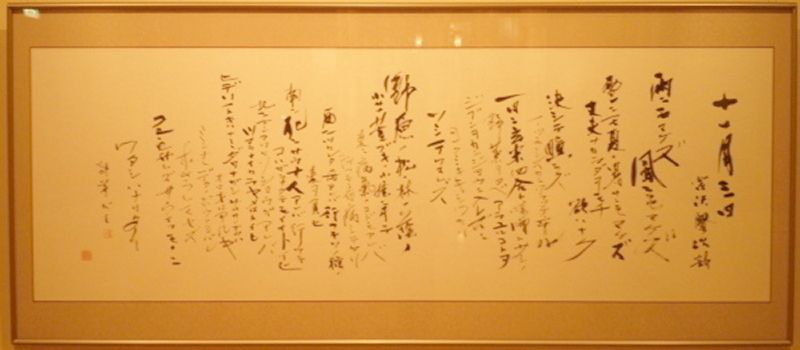 十一月三日
宮沢賢治詩
雨ニモマケズ
風ニモマケズ
雪ニモ夏ノ暑サニモマケズ
丈夫ナカラダヲモチ
慾ハナク
決シテ瞋ラズ
イツモシヅカニワラッテヰル
一日ニ玄米四合ト味噌ト少シノ
野菜ヲタベアラユルコトヲ
ジブンヲカンジョウニ入レズニ
ソシテワスレズ
野原ノ松林ノ蔭ノ
小サナ萱ブキノ小屋ニヰテ
東ニ病気ノコドモアレバ
行ッテ看病シテヤリ
西ニツカレタ母アレバ行ッテソノ稲ノ
束ヲ負ヒ
南ニ死ニサウナ人アレバ行ッテ
コハガラナクテモイヽトイヒ
北ニケンクヮヤソショウガアレバ
ツマラナイカラヤメロトイヒ
ヒデリノトキハナミダヲナガシ
サムサノナツハオロオロアルキ
ミンナニデクノボートヨバレ
ホメラレモセズ
クニモサレズサウイフモノニ
ワタシハナリタイ